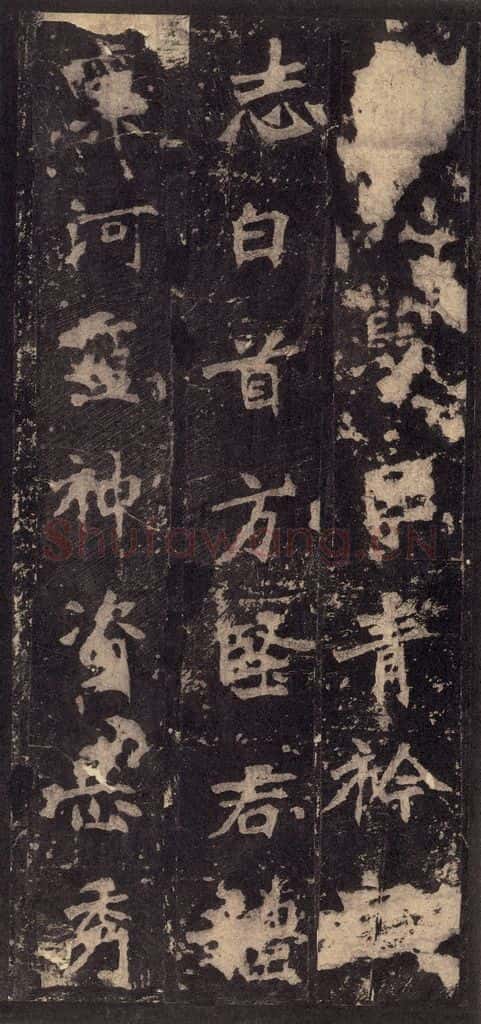 青衿
志白首方堅君體
稟河靈神資岳秀
Shufawang.CN